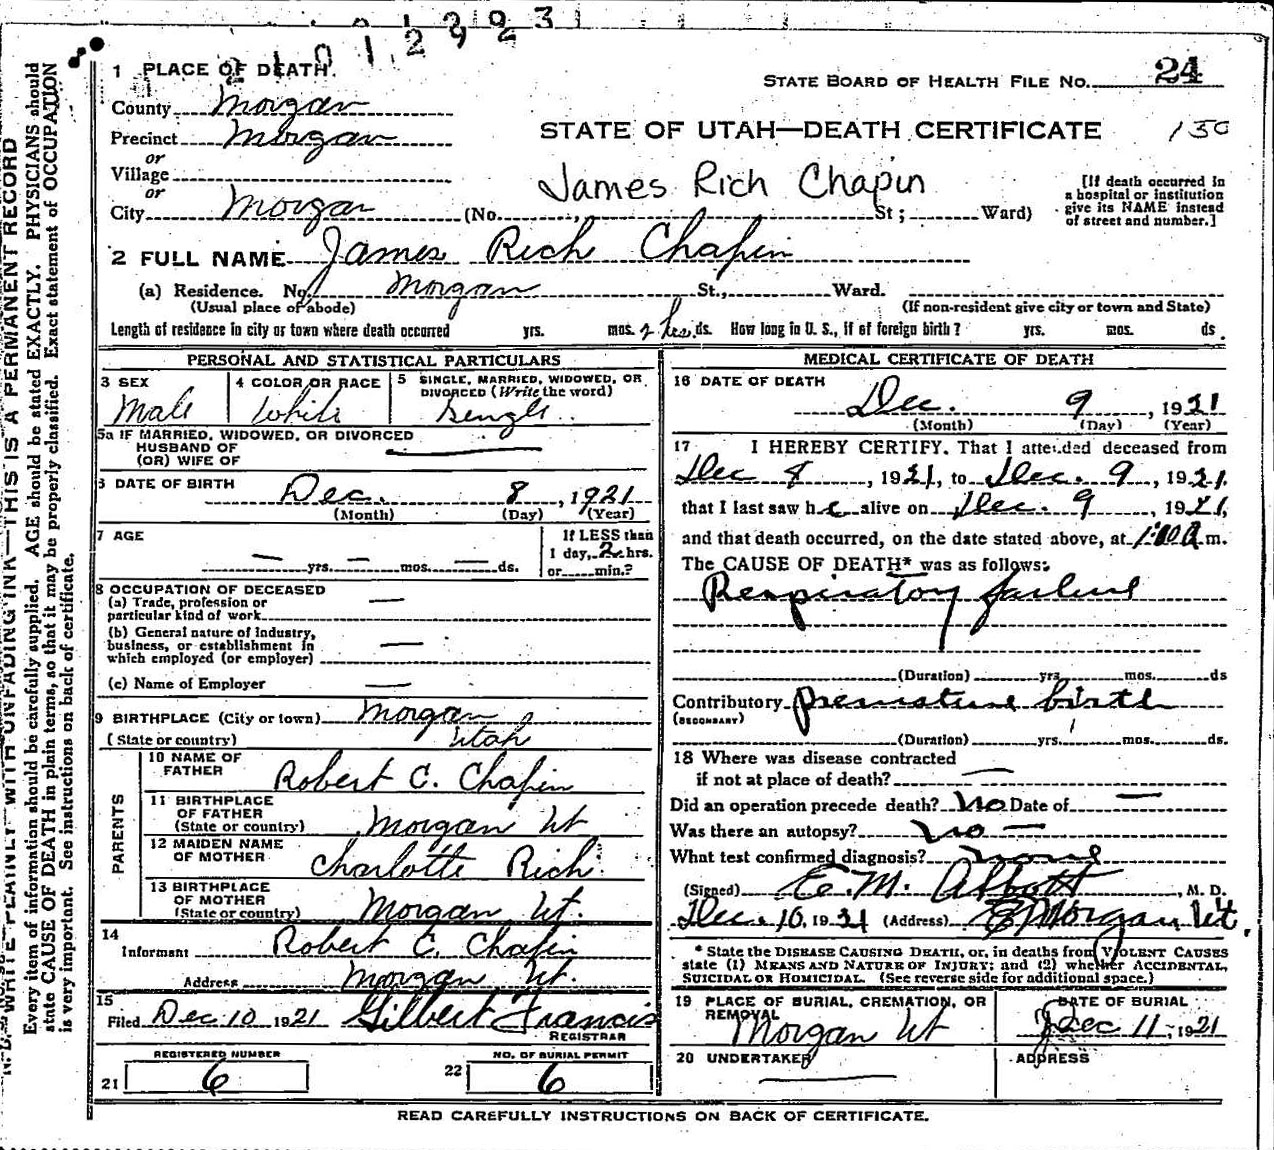 2101 2923
2
1 PLACE OF DEATH
STATE BOARD OF HEALTH FILE NO. 24
County Morgan
Precinct Morgan
STATE OF UTAH—DEATH CERTIFICATE 130
or
Village
or
James Rich Chapin
[If death occurred in
a hospital or institution
give its NAME instead
of street and number.]
City Morgan (No. , St; Ward)
2 FULL NAME James Rich Chapin
(a) Residence. No. Morgan St., Ward.
(Usual place of abode) (If non-resident give city or town and State)
Length of residence in city or town where death occurred yrs. mos. 2 hrs. ds. How long in U. S., if of foreign birth? yrs. mos. ds.
PERSONAL AND STATISTICAL PARTICULARS
3 SEX
Male
4 COLOR OR RACE
White
5 SINGLE, MARRIED, WIDOWED, OR
DIVORCED (Write the word)
Single
5a IF MARRIED, WIDOWED, OR DIVORCED
HUSBAND OF
(OR) WIFE OF
6 DATE OF BIRTH
Dec. 8, 1921
(Month) (Day) (Year)
7 AGE
yrs. mos. ds.
If LESS than
1 day, 2 hrs.
or min.?
8 OCCUPATION OF DECEASED
(a) Trade, profession or
particular kind of work
(b) General nature of Industry,
business, or establishment in
which employed (or employer)
(c) Name of Employer
9 BIRTHPLACE (City or town) Morgan
(State or country) Utah
PARENTS
10 NAME OF
FATHER
Robert C. Chapin
11 BIRTHPLACE
OF FATHER
(State or country) Morgan Ut
12 MAIDEN NAME
OF MOTHER
Charlotte Rich
13 BIRTHPLACE
OF MOTHER
(State or country) Morgan Ut.
14
Informant Robert C. Chapin
Address Morgan Ut.
15
Filed Dec 10 1921 Gilbert Francis
REGISTRAR
REGISTERED NUMBER
21 6
NO. OF BURIAL PERMIT
22 6
MEDICAL CERTIFICATE OF DEATH
16 DATE OF DEATH
Dec. 9, 1921
(Month) (Day) (Year)
17 I HEREBY CERTIFY, That I attended deceased from
Dec 8, 1921, to Dec. 9, 1921,
that I last saw he alive on Dec. 9, 1921,
and that death occurred, on the date stated above, at 1:00 a m.
The CAUSE OF DEATH* was as follows:
Respiratory failure
(Duration) yrs. mos. ds
Contributory premature birth
(SECONDARY)
(Duration) yrs. mos. ds.
18 Where was disease contracted
if not at place of death?
Did an operation precede death? No Date of
Was there an autopsy? No
What test confirmed diagnosis? none
(Signed) E. M. Abbott, M. D.
Dec. 10, 1921 (Address) Morgan Ut.
* State the DISEASE CAUSING DEATH, or, in deaths from VIOLENT CAUSES
state (1) MEANS AND NATURE OF INJURY; and (2) whether ACCIDENTAL,
SUICIDAL OR HOMICIDAL. (See reverse side for additional space.)
19 PLACE OF BURIAL, CREMATION, OR
REMOVAL
Morgan Ut
DATE OF BURIAL
Dec 11, 1921
20 UNDERTAKER
ADDRESS
READ CAREFULLY INSTRUCTIONS ON BACK OF CERTIFICATE.
WRITE PLAINLY WITH UNFADING INK—THIS IS A PERMANENT RECORD
Every item of information should be carefully supplied. AGE should be stated EXACTLY. PHYSICIANS should
state CAUSE OF DEATH in plain terms, so that it may be properly classified. Exact statement of OCCUPATION
is very important. See instructions on back of certificate.